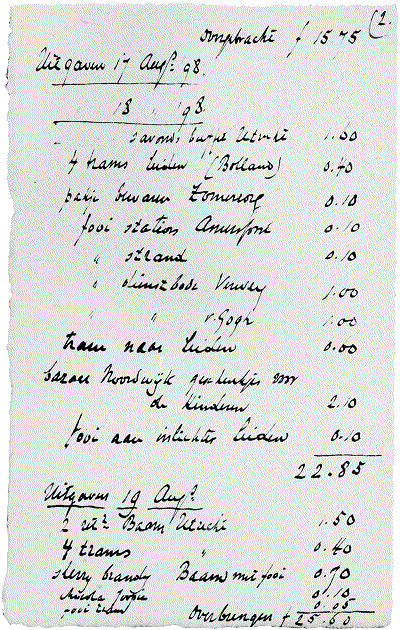 (2.
overgebracht f 15,75
Uitgaven 17 Augs. 98.
18 " '98.
savonds buffet Utrecht 1.60
4 trams Leiden (Bolland) 0.40
pakje bewaren Zomerzorg 0.10
fooi station Amersfoort 0.10
" strand 0.10
" dienstbode Verwey 1.00
" " v. Gogh 1.00
tram naar Leiden 0.00
bazar Noordwijk geschenkjes voor
de kinderen 2.10
fooi aan inlichter Leiden 0.10
22.85
Uitgaven 19 Augs.
2 retr. Baarn Utrecht 1.50
4 trams " 0.40
sherry brandy Baarn met fooi 0.70
0.10
fooi tram 0.05
Overbrengen f 25.60